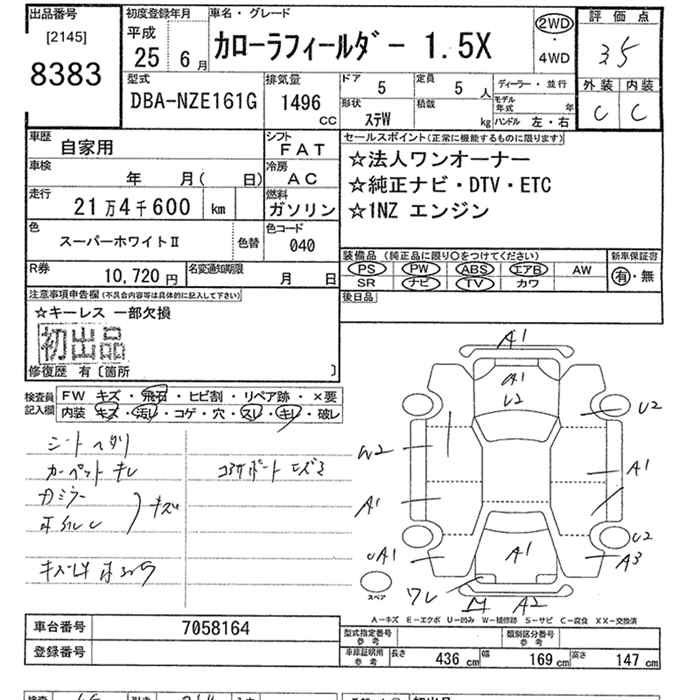 出品番号
[2145]
8383
初度登録年月
平成
25 6月
車名・グレード
カローラフィールダー 1.5X
2WD
・
4WD
評価点
35
外装 内装
C C
型式
DBA-NZE161G
排気量
1496
cc
ドア
5
定員
5人
形状
ステW
積載
kg
ディーラー・並行
モデル年式 年
ハンドル 左・右
車歴
自家用
シフト
FAT
車検
年 月( 日)
冷房
AC
走行
21万4千600 km
燃料
ガソリン
色
スーパーホワイトⅡ
色替
色コード
040
R券
10,720円
名変通知期限
月 日
セールスポイント(正常に機能するものに限ります)
☆法人ワンオーナー
☆純正ナビ・DTV・ETC
☆1NZ エンジン
装備品(純正品に限り○をつけてください)
新車保証書
PS PW ABS エアB AW
SR ナビ TV カワ
有・無
後日品
注意事項申告欄(不具合内容等は具体的に記入して下さい)
☆キーレス 一部欠損
初出品
修復歴 有〔箇所 〕
検査員記入欄
FW キズ・飛石・ヒビ割・リペア跡・×要
内装 キズ・汚レ・コゲ・穴・スレ・キレ・破レ
シートヘタリ
カーペットキレ
キズ
A1
A1
U2
U2
A1
A1
U2
A3
A1
A2
ワレ
スペア
A-キズ E-エクボ U-凹み W-補修跡 S-サビ C-腐食 XX-交換済
車台番号
7058164
登録番号
型式指定番号
参考
類別区分番号
参考
車庫証明用
参考
長さ 436cm 幅 169cm 高さ 147cm